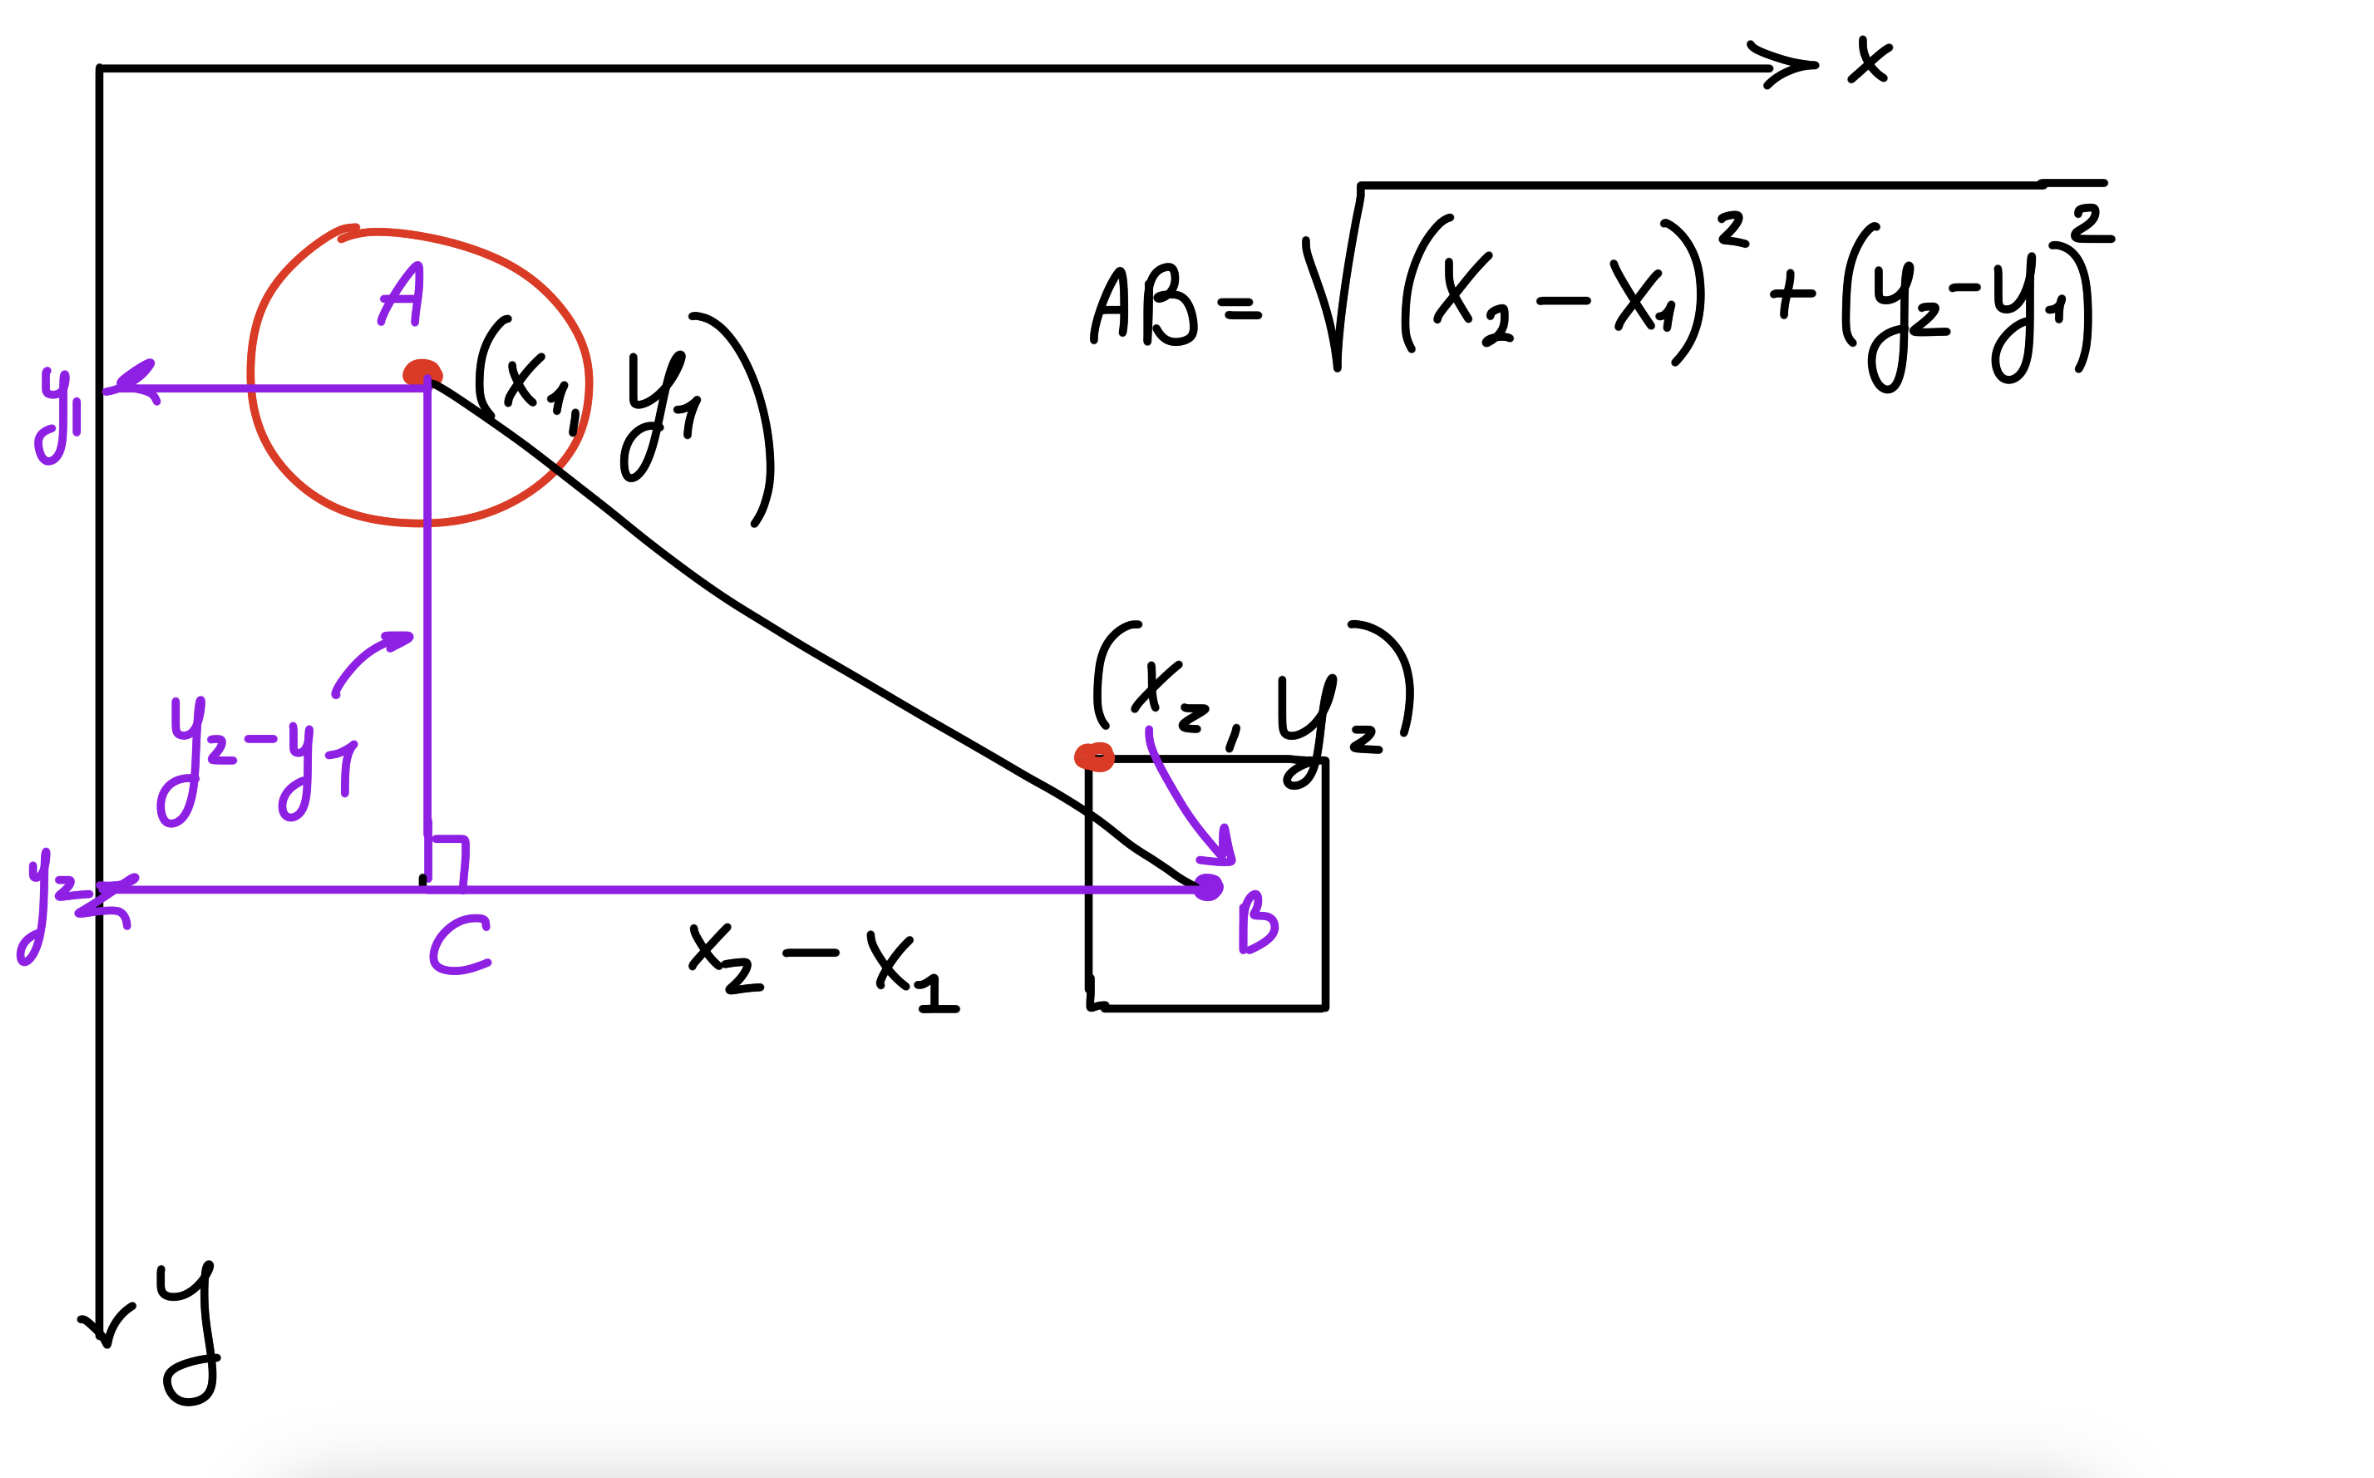 x
AB = √(x₂ − x₁)² + (y₂ − y₁)²
A
(x₁, y₁)
y₁
(x₂, y₂)
y₂ − y₁
y₂
B
C
x₂ − x₁
y